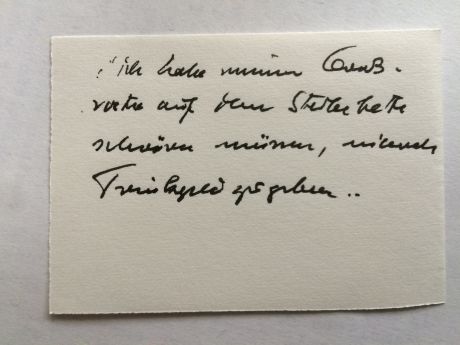 "ich habe meinem Groß-
vater auf dem Sterbebette
schwören müssen, niemals
Trinkgeld zu geben..